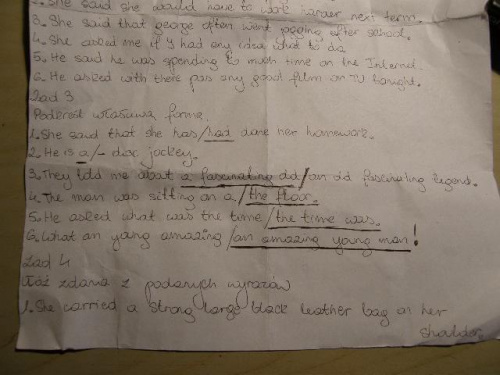 2. She said she would have to work harder next term.
3. She said that george often went jogging after school.
4. She asked me if I had any idea what to do
5. He said he was spending to much time on the Internet.
6. He asked with there pas any good film on TV tonight.
Zad 3
Podkreśl właściwą formę.
1. She said that she has/had done her homework.
2. He is a/- disc jockey.
3. They told me about a fascinating old/an old fascinating legend.
4. The man was sitting on a/the floor.
5. He asked what was the time/the time was.
6. What an young amazing/an amazing young man!
Zad 4
Ułóż zdania z podanych wyrazów
1. She carried a strong large black leather bag on her
shoulder